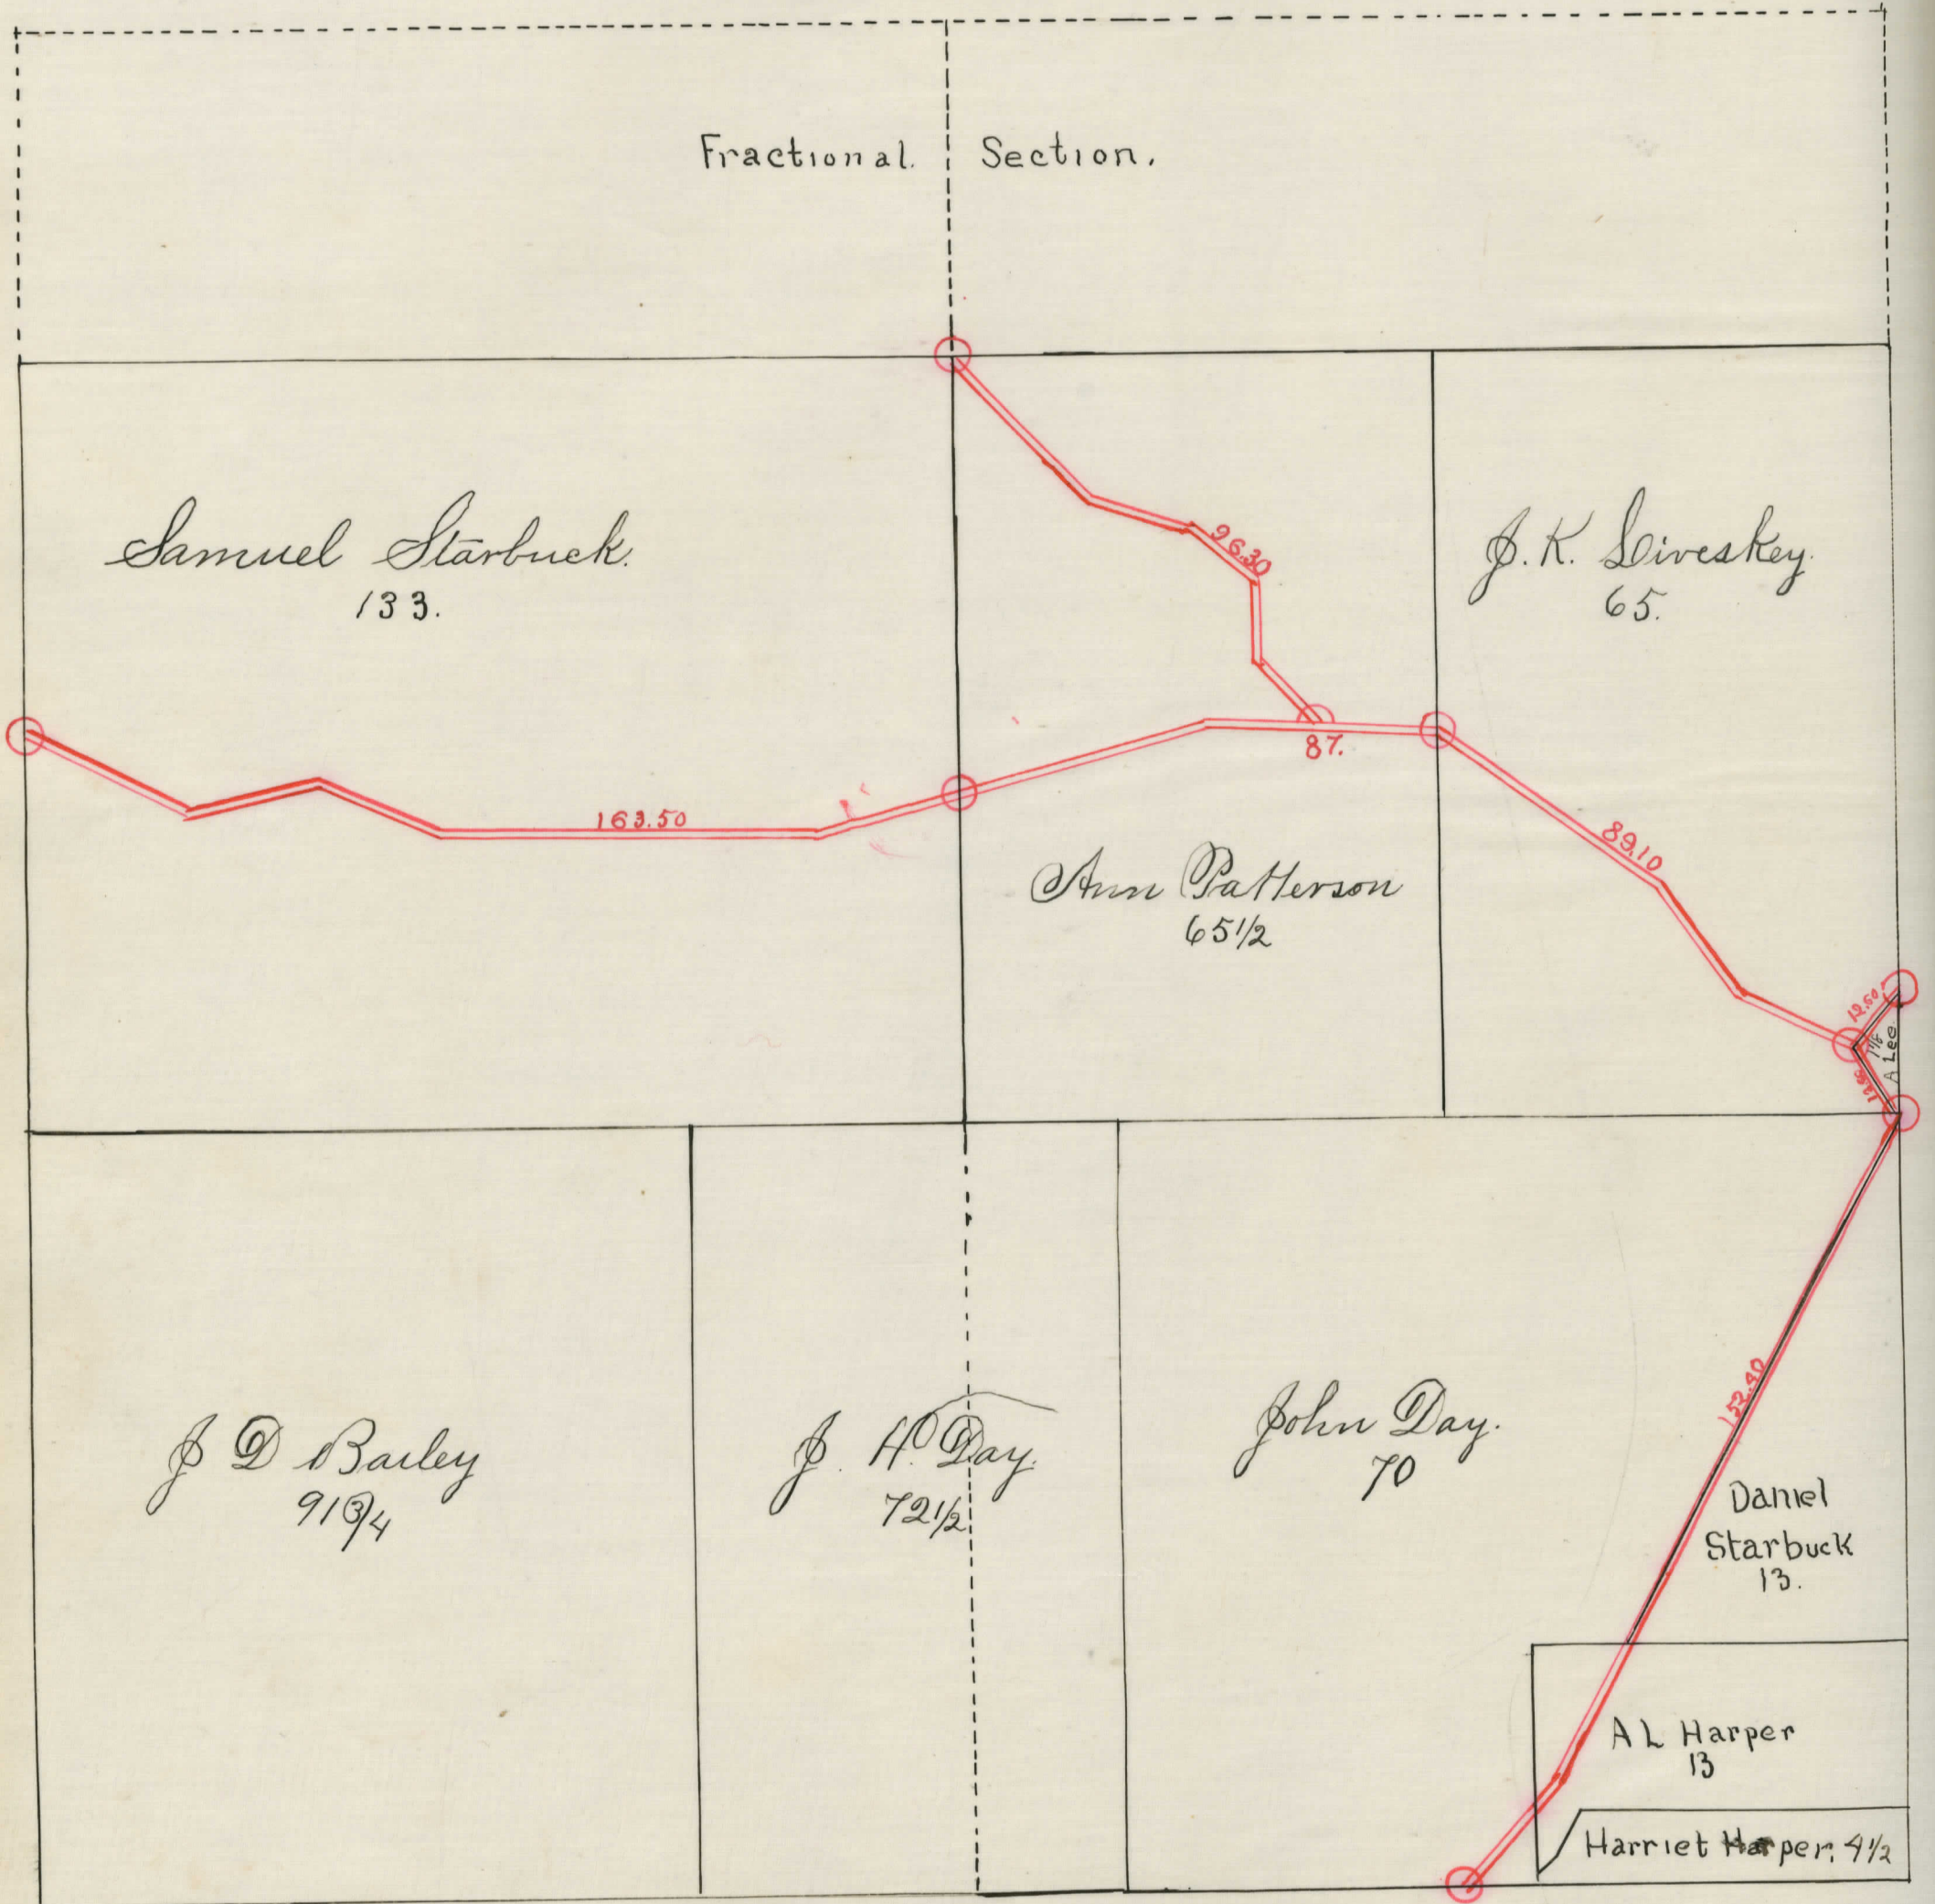 Fractional. Section.
Samuel Starbuck.
133.
96.30
J. K. Liveskey.
65.
87.
163.50
89.10
Ann Patterson
65 1/2
12.50
A Lee
J D Bailey
91 3/4
J. H. Day.
72 1/2
John Day.
70
152.40
Daniel
Starbuck
13.
A L Harper
13
Harriet Harper. 4 1/2